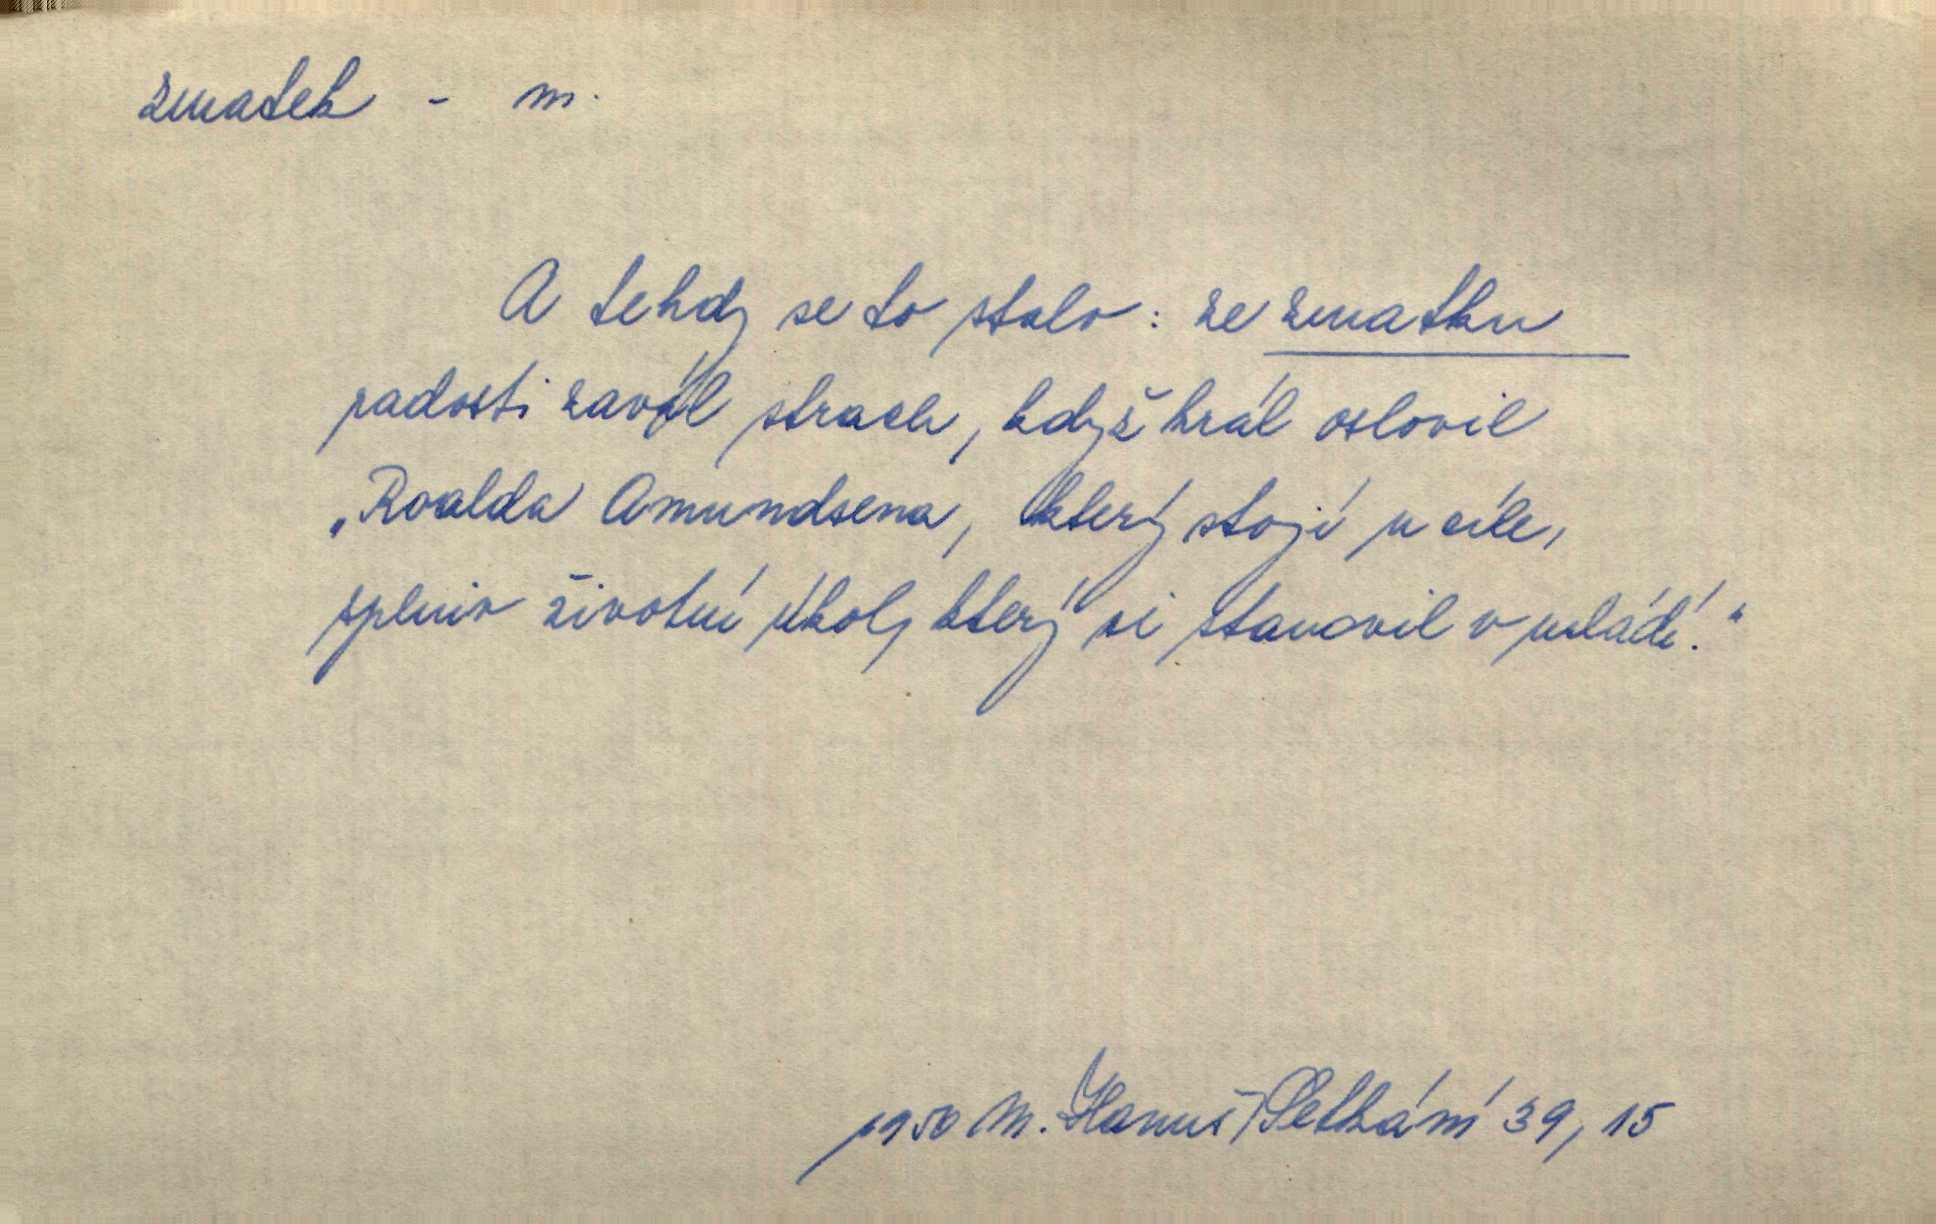 zmatek - m.
A tehdy se to stalo: ze zmatku
radosti zavál strach, když král oslovil
„Roalda Amundsena, který stojí u cíle,
splniv životní úkol, který si stanovil v mládí.“
1950 M. Hanuš, Setkání 39, 15